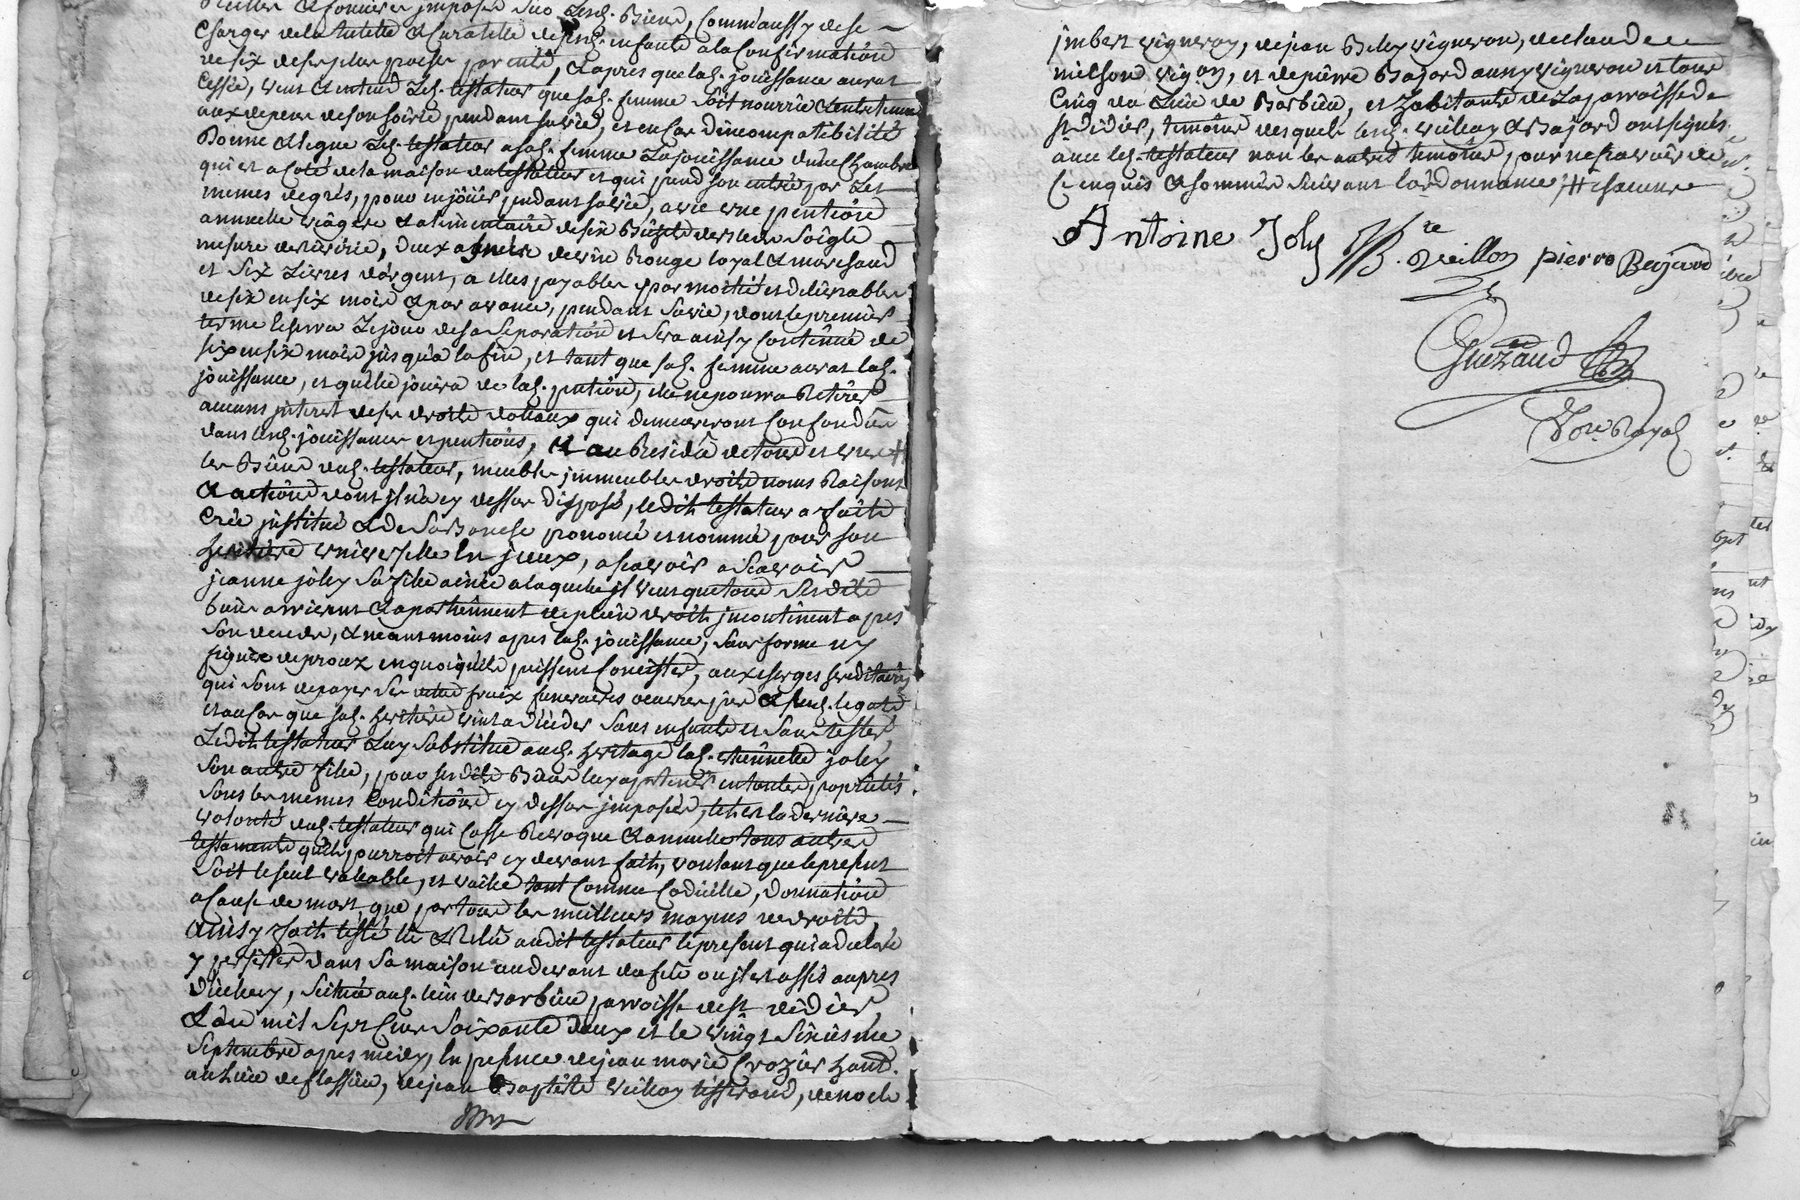 charger de la tutelle & curatelle de sesd. enfants a la Confirmation
de six de ses plus proches parents, & apres que lad. jouissance aurat
Cessée, veut & entend led. testateur que sad. femme soit nourrie & entretenue
aux depens de son hoirie, pendant sa vie, et en Cas d'incompatibilité
Donne & legue led. testateur a sad. femme La jouissance d'une Chambre
qui est a coté de la maison du testateur et qui prend son entrée par Les
memes degrés, pour en joüir pendant sa vie, avec une pention
annuelle viagere & alimentaire de six Bichets de bled Soigle
mesure de riverie, deux asnées de vin Rouge loyal & marchand
et Six Livres d'argent, a elles payables par moitié et delivrables
de six en six mois & par avance, pendant sa vie, dont le premier
terme Escherra Le jour de sa Separation et sera ainsy Continué de
six en six mois jusqu'a la fin, et tant que sad. femme aurat lad.
jouissance, et qu'elle jouira de lad. pention, elle ne pourra Retirer
aucuns interest de ses droits dotaux qui demeureront Confondus
dans lesd. jouissances et pentions, Et au Residu de tous et uns #
les Biens dud. testateur, meubles immeubles droits noms Raisons
& actions dont il n'a cy dessus disposé, ledit testateur a fait
Créé institué & de sa Bouche prononcé et nommé pour son
heritiere universelle En jceux, ascavoir ascavoir
jeanne joly Sa fille ainée a laquelle il veut que tous Sesdits
biens arrivent & apartiennent de plein droit incontinent apres
Son deceds, & neantmoins apres lad. jouissance, sans forme ny
figure de procez en quoi qu'ils puissent Consister, aux charges hereditaires
qui sont de payer ses dettes fraix funeraires oeuvres pies & susd. legats
et au Cas que sad. heritiere vint a déceder Sans enfants et sans tester
Ledit testateur Luy substitue aud. heritage lad. etiennette joly
Son autre fille, pour sesdits Biens luy apartenir en toutes proprietés
sous les memes Conditions cy dessus imposées, telle est la derniere
volonté dud. testateur qui Casse Revoque & annulle tous autres
testaments qu'il pourroit avoir cy devant fait, voulant que le present
Soit le seul valable, et vaille tant Comme Codicille, donnation
a Cause de mort, que par tous les meilleurs moyens de droits
ainsy fait testé lu & Relu audit testateur le present qui a declaré
y persister dans Sa maison au devant du feu ou il est assis aupres
d'icelluy, Scituée aud. lieu de Barbieu, parroisse de st didier,
L'an mil Sept Cent Soixante deux et le vingt Sixiesme
Septembre apres midy, En presence de jean marie Crozier hant.
au Lieu de flassieu, de jean Baptiste veillon tisserand, de noel
imbert vigneron, de jean Belly vigneron, de claude
milson vigon, et de pierre Bajard aussy vigneron et tous
Cinq du Lieu de Barbieu, et habitants de La parroisse de
st didier, temoins desquels lesd. veillon & Bajard ont signés
avec led. testateur non les autres temoins, pour ne scavoir de
Ce enquis & sommés suivant l'ordonnance,
Antoine Joly J B.te Veillon pierre Bajard
Guezaud
No.re Royal